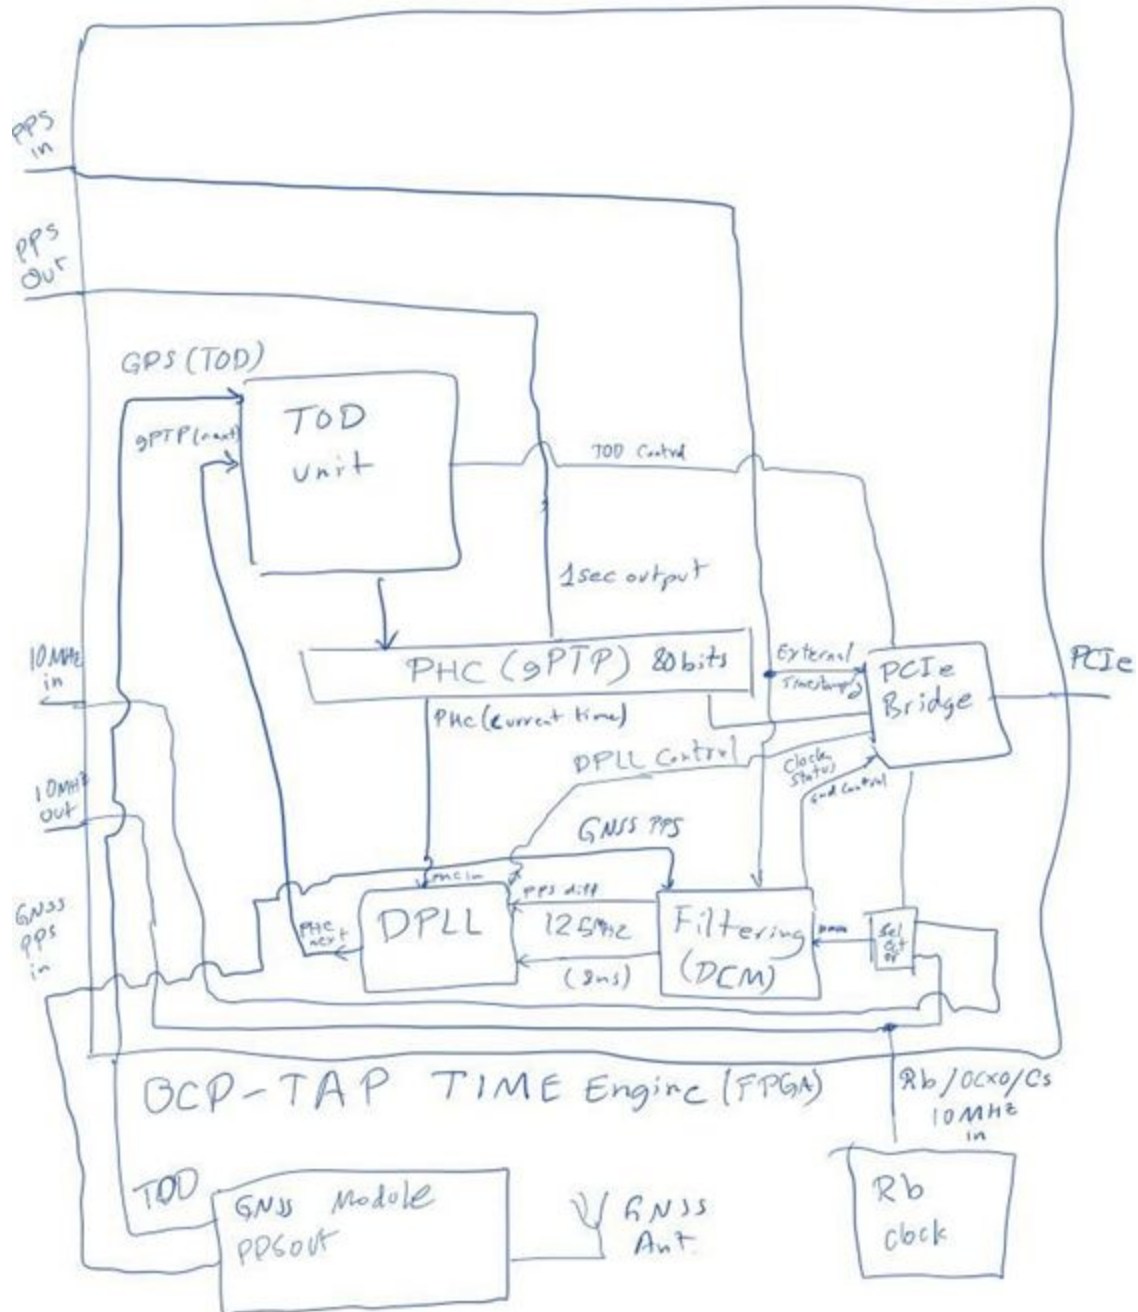 PPS
in
PPS
Out
GPS (TOD)
gPTP (next)
TOD
unit
TOD Control
1sec output
10 MHz
in
PHC (gPTP) 80 bits
External
Timestamps
PCIe
Bridge
PCIe
PHC (current time)
DPLL Control
Clock
Status
and Control
10MHz
out
GNSS PPS
PHC in
PPS diff
GNSS
PPS
in
PHC
next
DPLL
125MHz
(8ns)
Filtering
(DCM)
Sel
ect
or
OCP-TAP TIME Engine (FPGA)
Rb/OCXO/Cs
10 MHz
in
TOD
GNSS Module
PPSout
GNSS
Ant.
Rb
Clock